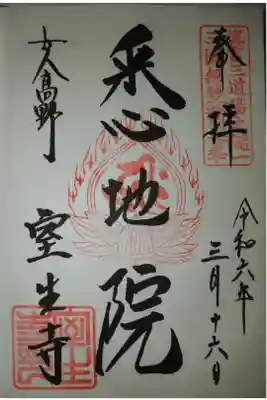 奉拝
令和六年
三月十六日
悉地院
女人高野
室生寺